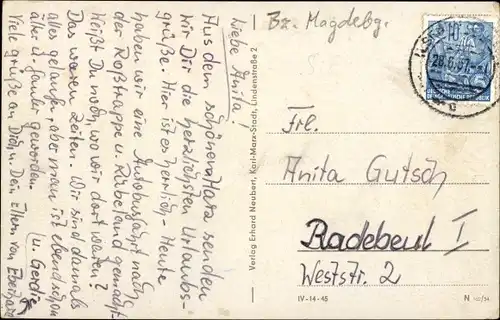 Liebe Anita!
Aus dem schönen Harz senden
wir Dir die herzlichsten Urlaubs-
grüße. Hier ist es herrlich. Heute
haben wir eine Autobusfahrt nach
der Roßtrappe u. Rübeland gemacht.
Weißt Du noch, wo wir dort waren?
Das waren Zeiten. Wir sind damals
alles gelaufen, aber man ist eben schon
alter u. fauler geworden.
Viele Grüße an Dich u. Dein Eltern von Eberhard
u. Gerdi
Verlag Erhard Neubert, Karl-Marx-Stadt, Lindenstraße 2
Bz. Magdebg.
10
28.6.57
DEUTSCHE
DEMOKRATISCHE REPUBLIK
Frl.
Anita Gutsch
Radebeul I
Weststr. 2
IV-14-45
N